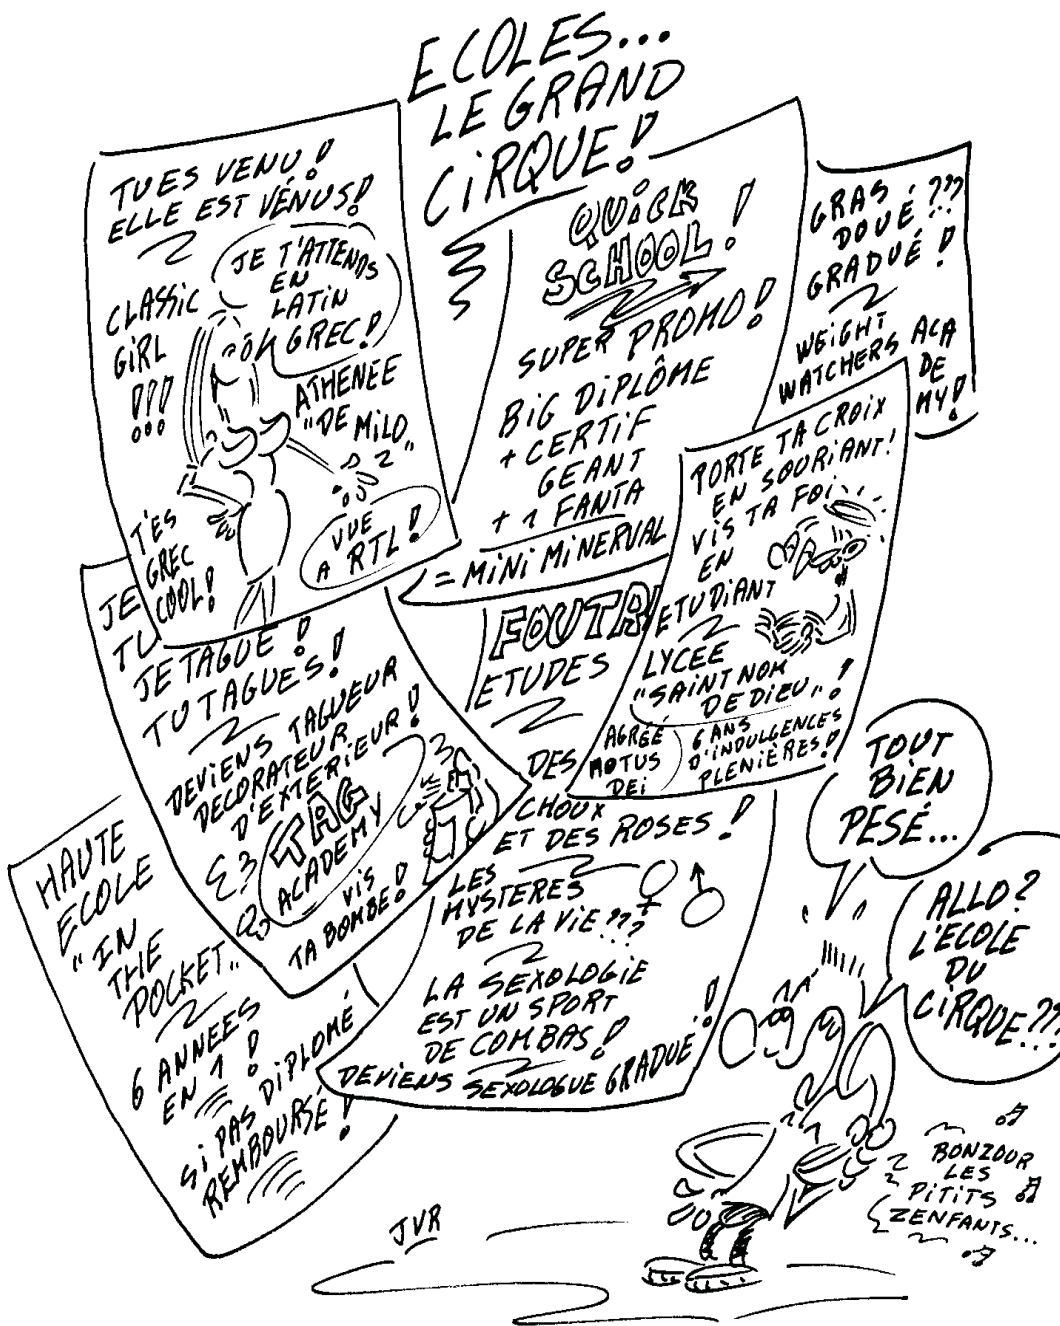 ECOLES...
LE GRAND
CIRQUE!
TU ES VENU!
ELLE EST VÉNUS!
JE T'ATTENDS
EN
LATIN
GREC!
CLASSIC
GIRL
!!!
ATHENEE
"DE MILO"
T'ES
GREC
COOL!
VUE
A RTL!
QUICK
SCHOOL!
SUPER PROMO!
BIG DIPLÔME
+ CERTIF
GEANT
+ 1 FANTA
= MINI MINERVAL
GRAS
DOUÉ???
GRADUÉ!
WEIGHT
WATCHERS
ACA
DE
MY!
PORTE TA CROIX
EN SOURIANT!
VIS TA FOI
EN
ETUDIANT
LYCEE
"SAINT NOM
DE DIEU"!
AGRÉÉ
MOTUS
DEI
6 ANS
D'INDULGENCES
PLENIÈRES!
JE
TU
JE TAGUE!
TU TAGUES!
DEVIENS TAGUEUR
DECORATEUR
D'EXTERIEUR!
TAG
ACADEMY
VIS
TA BOMBE!
FOUTR
ETUDES
DES
CHOUX
ET DES ROSES!
LES
MYSTERES
DE LA VIE???
LA SEXOLOGIE
EST UN SPORT
DE COMBAS!
DEVIENS SEXOLOGUE GRADUÉ!
HAUTE
ECOLE
"IN
THE
POCKET"
6 ANNEES
EN 1!
SI PAS DIPLOMÉ
REMBOURSÉ!
TOUT
BIEN
PESÉ...
ALLO?
L'ECOLE
DU
CIRQUE???
BONZOUR
LES
PITITS
ZENFANTS...
JVR